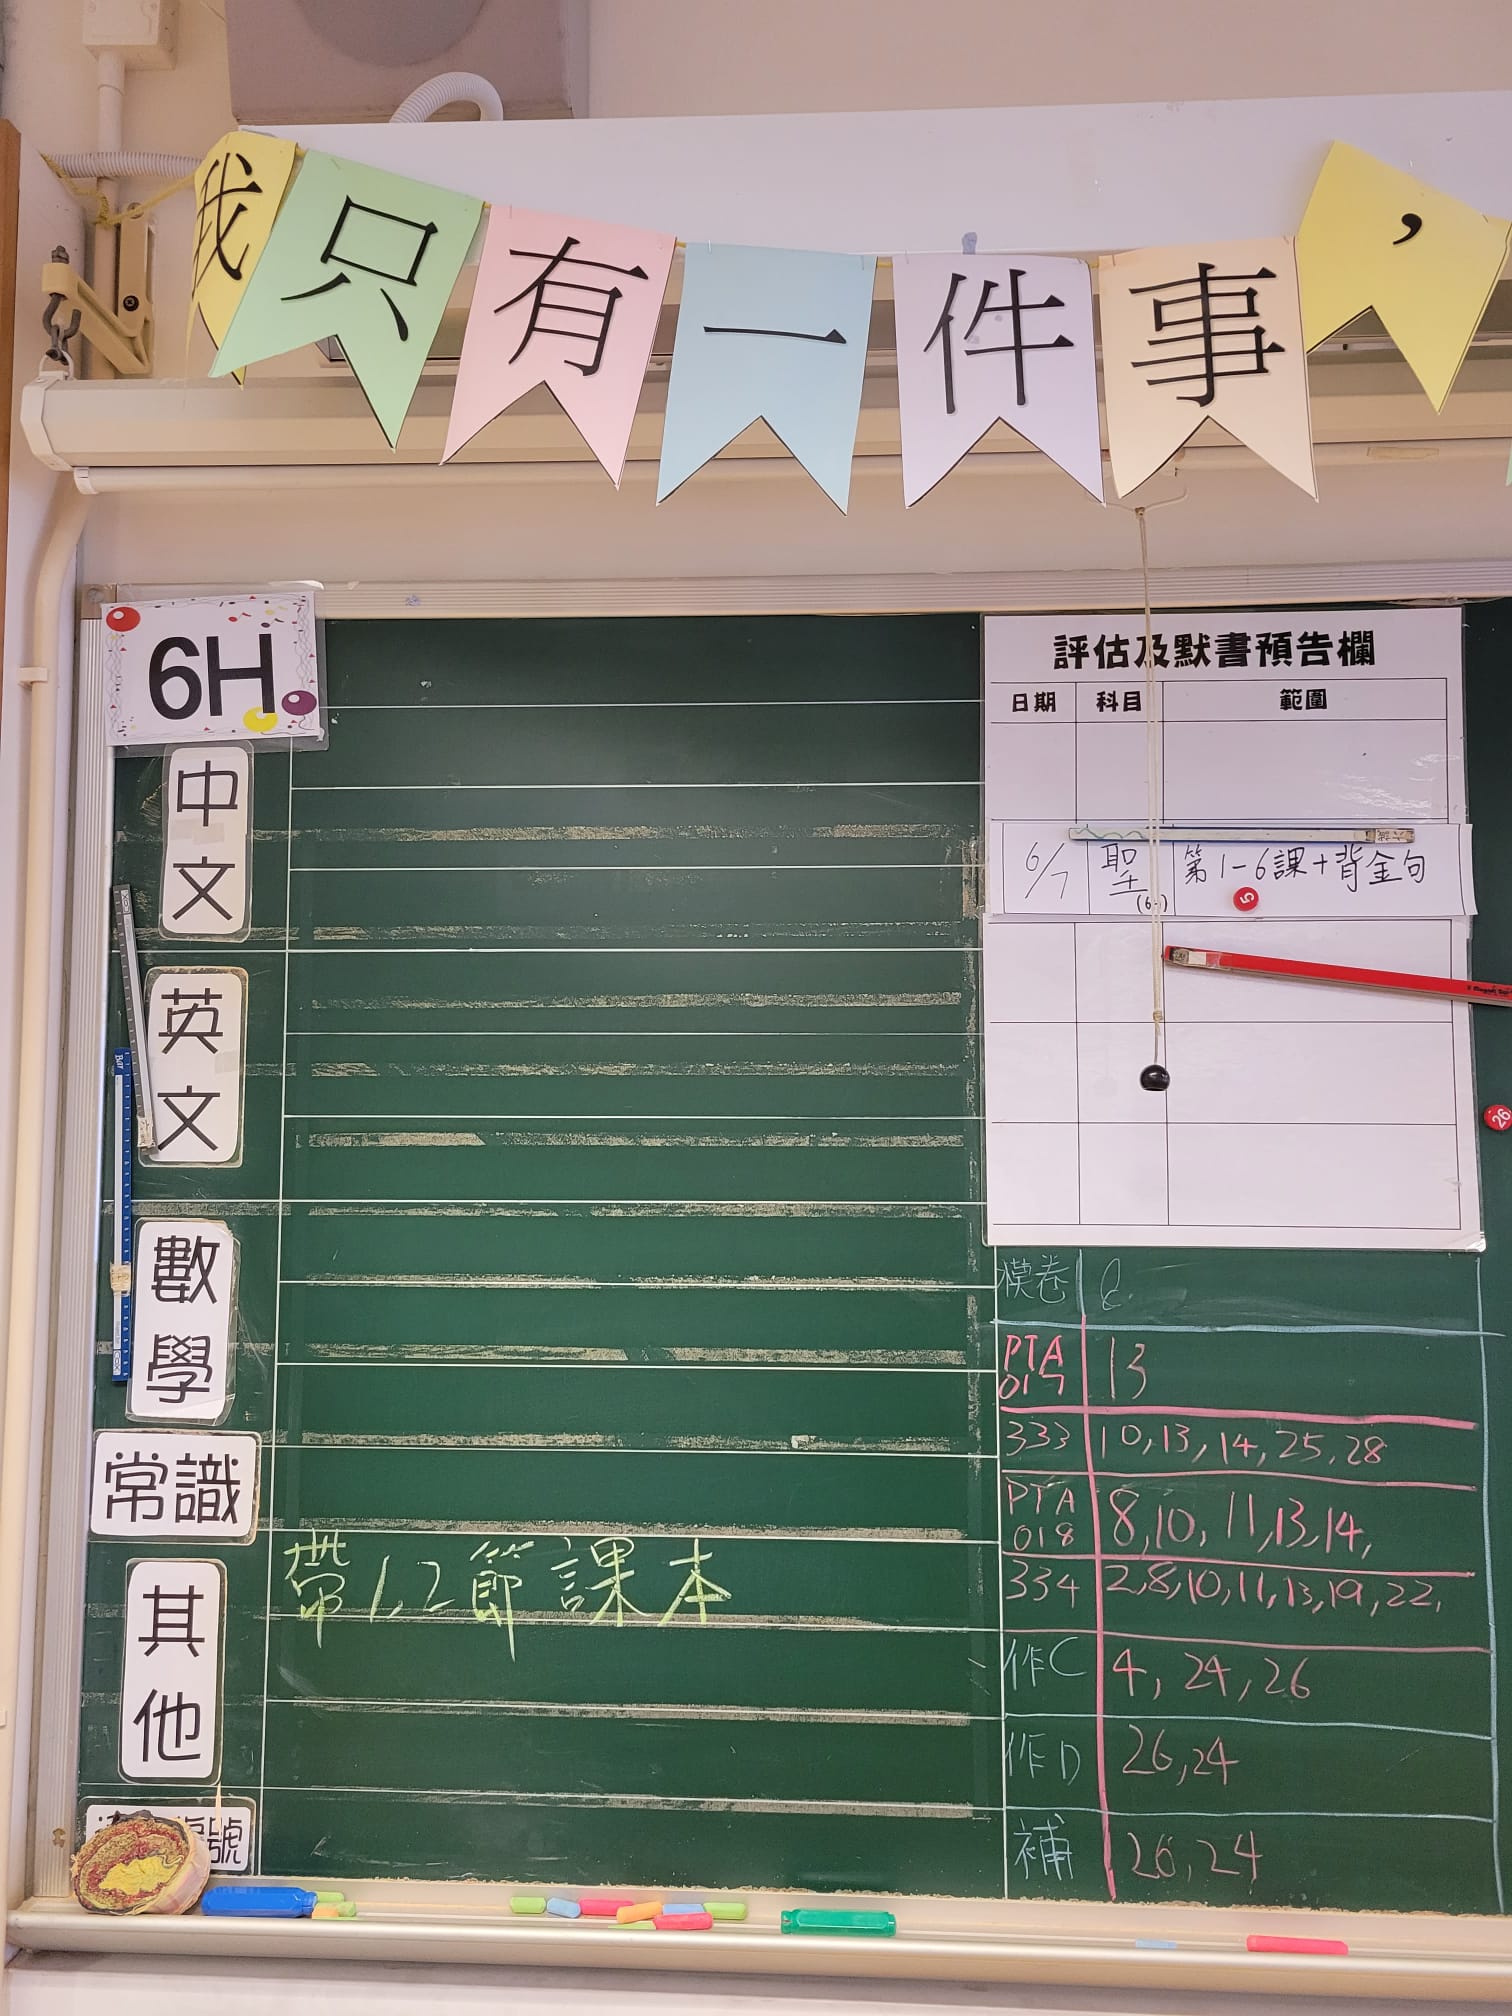 我只有一件事，
6H
中文
英文
數學
常識
其他
帶1,2節課本
號
評估及默書預告欄
日期 科目 範圍
6/7 聖 第1-6課+背金句
5
26
模卷 8.
PTA 017 13
333 10,13,14,25,28
PTA 018 8,10,11,13,14,
334 2,8,10,11,13,19,22,
作C 4,24,26
作D 26,24
補 26,24